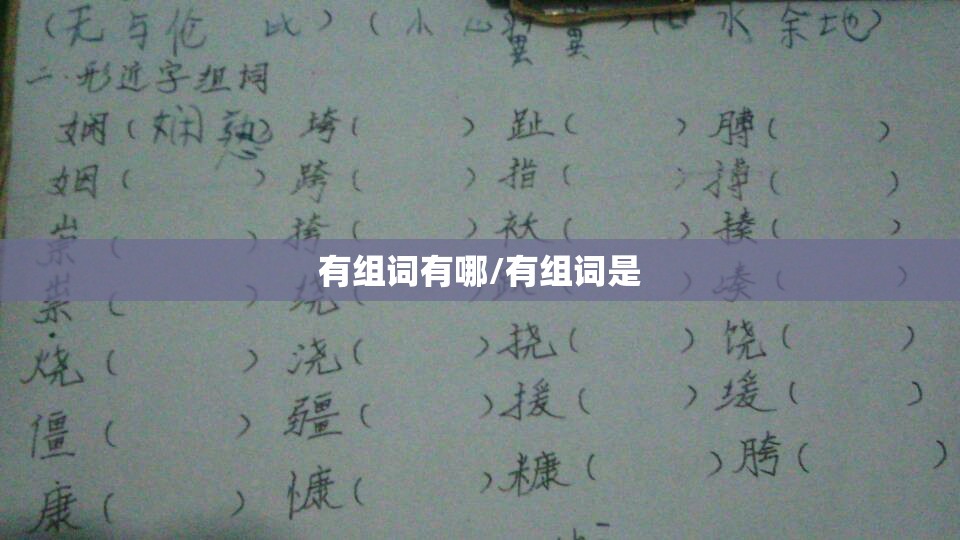 (无与伦比)(小心翼翼)( 水 余地)
二.形近字组词
娴(娴熟) 垮( ) 趾( ) 膊( )
姻( ) 跨( ) 指( ) 搏( )
崇( ) 挎( ) 袄( ) 揍( )
有组词有哪/有组词是
祟( ) 绕( ) 跃( ) 凑( )
烧( ) 浇( ) 挠( ) 饶( )
僵( ) 疆( ) 援( ) 缓( )
康( ) 慷( ) 糠( ) 胯( )